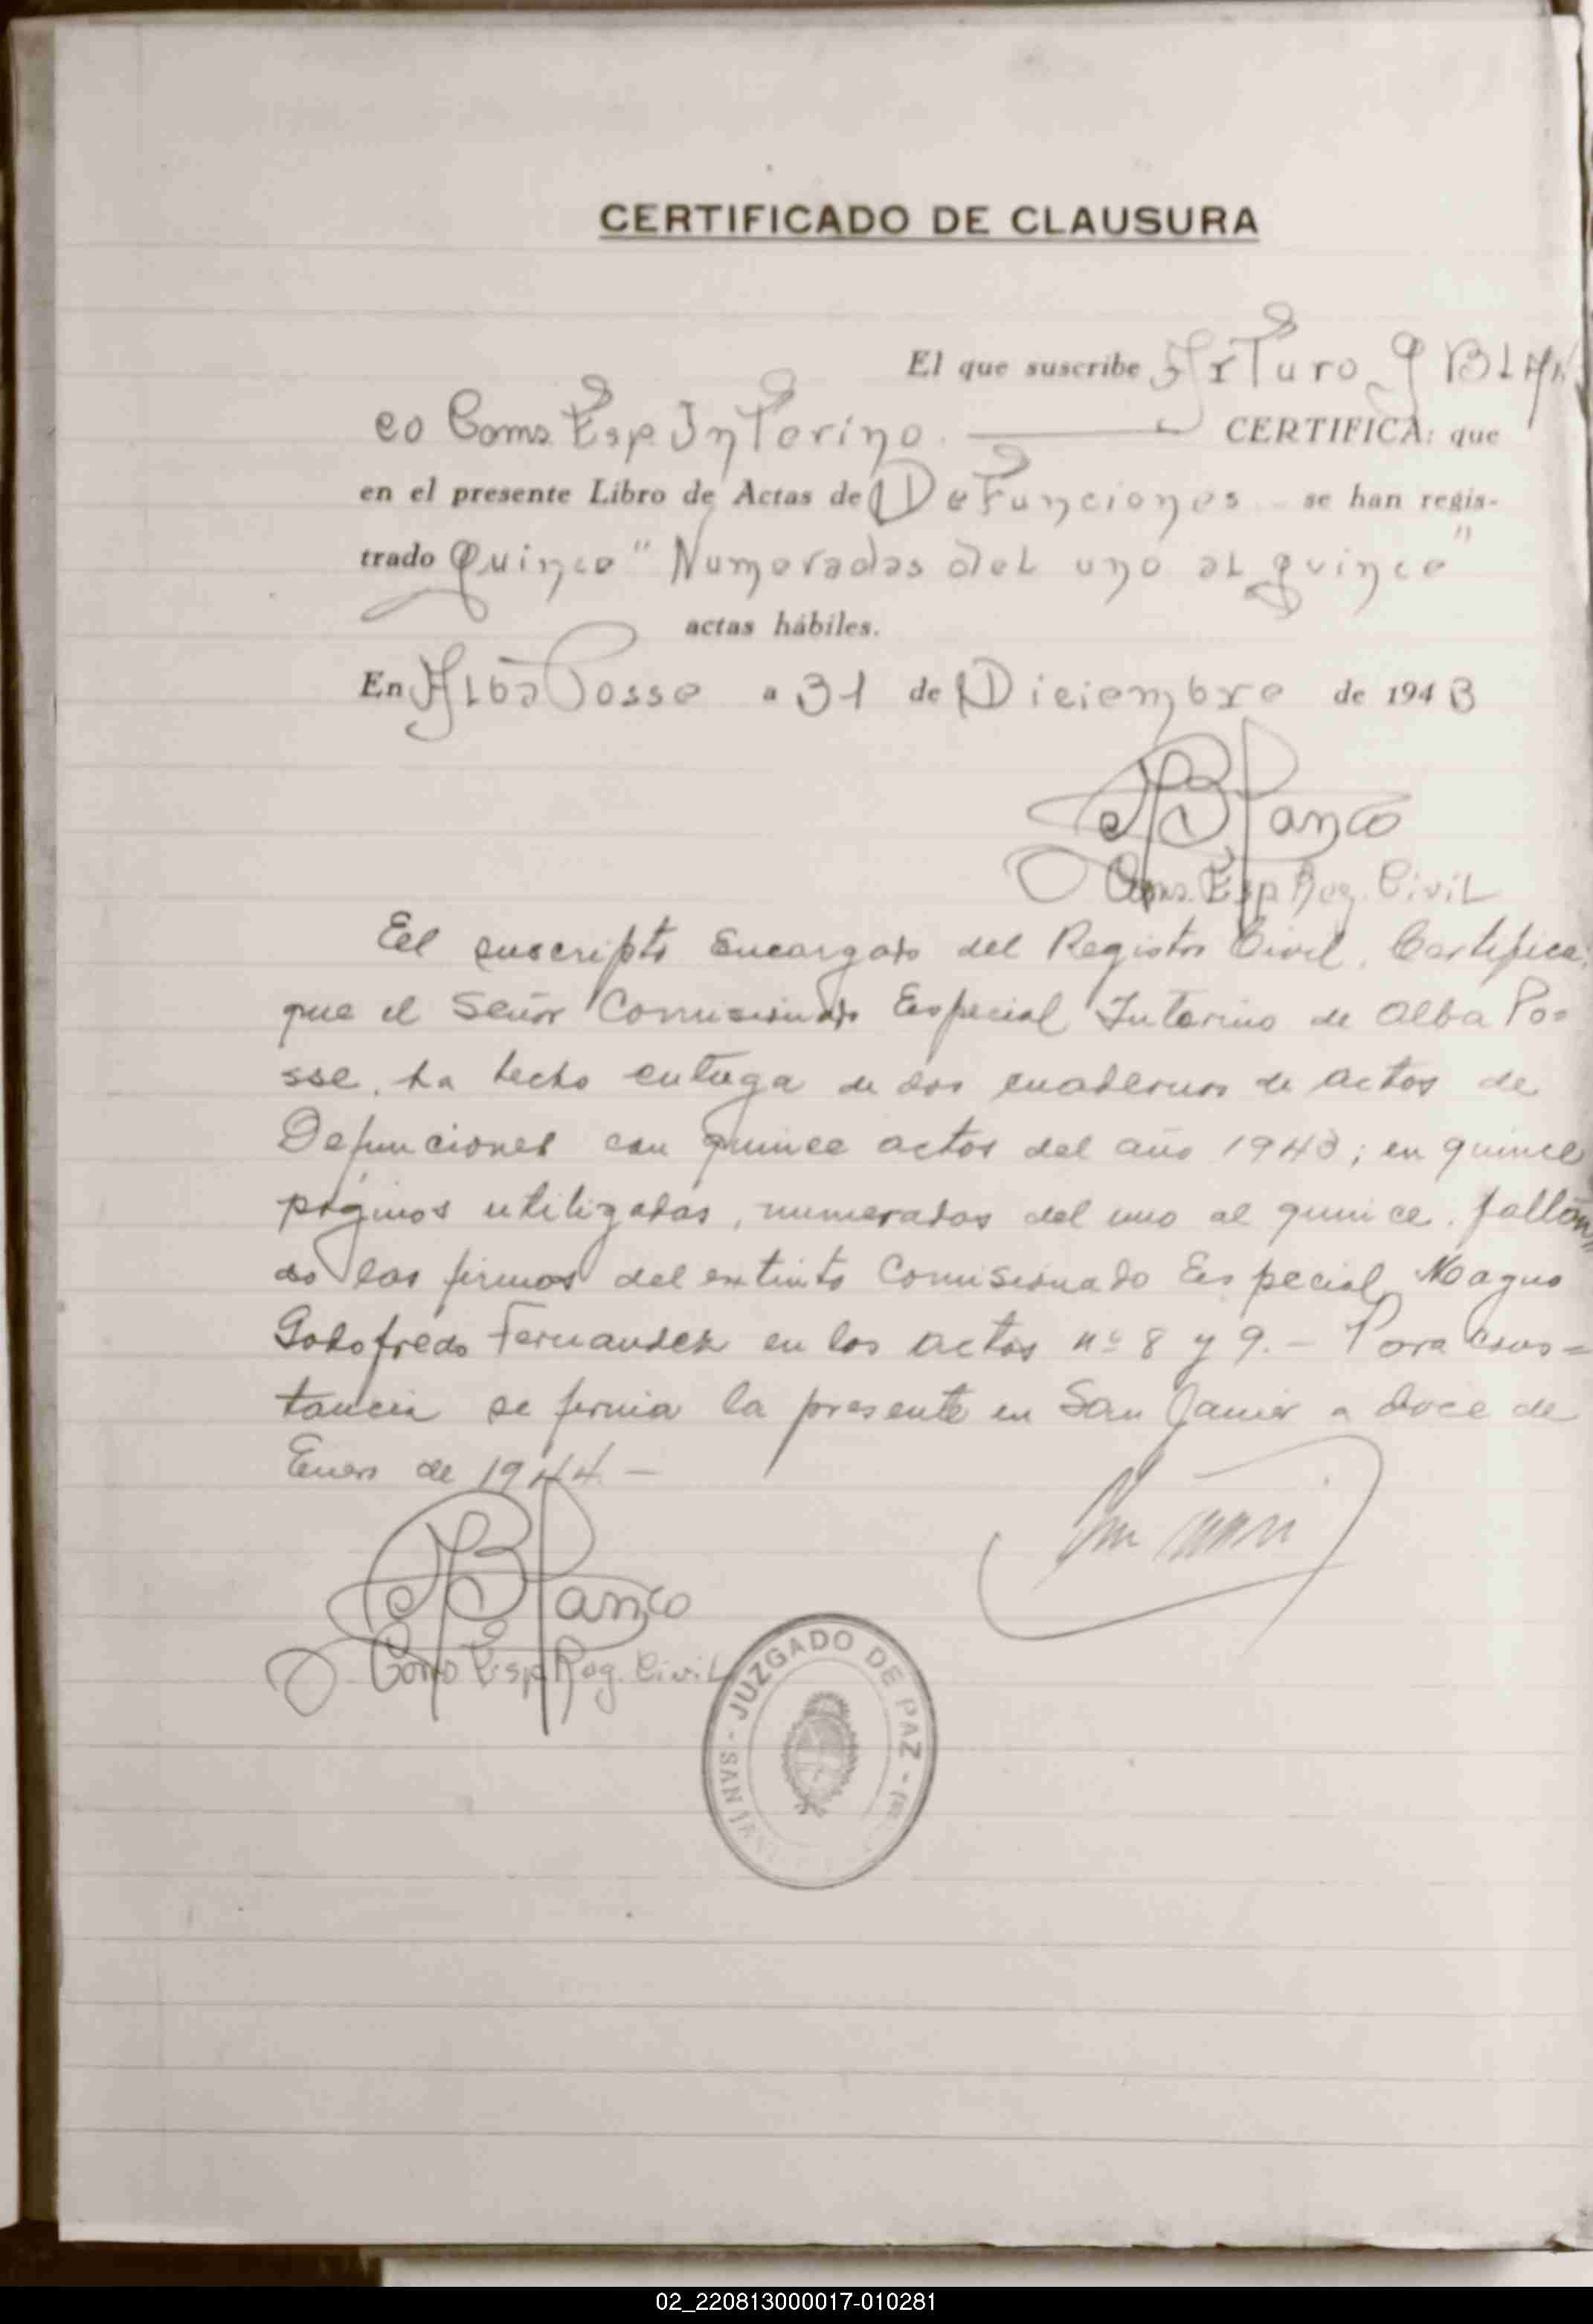 CERTIFICADO DE CLAUSURA
El que suscribe Arturo J Blan
co Coms. Esp Interino. CERTIFICA: que
en el presente Libro de Actas de Defunciones se han regis-
trado Quince "Numeradas del uno al quince"
actas hábiles.
En Alba Posse a 31 de Diciembre de 1943
Blanco
Coms. Esp Reg. Civil
El suscripto Encargado del Registro Civil, Certifica:
que el Señor Comisionado Especial Interino de Alba Po=
sse, ha hecho entrega de dos cuadernos de actas de
Defunciones con quince actas del año 1943; en quince
páginas utilizadas, numeradas del uno al quince, faltan
do las firmas del extinto Comisionado Especial Magno
Godofredo Fernandez en las actas nº 8 y 9.- Para cons=
tancia se firma la presente en San Javier a doce de
Enero de 1944.-
Blanco
Coms Esp. Reg. Civil
JUZGADO DE PAZ - SAN
02_220813000017-010281